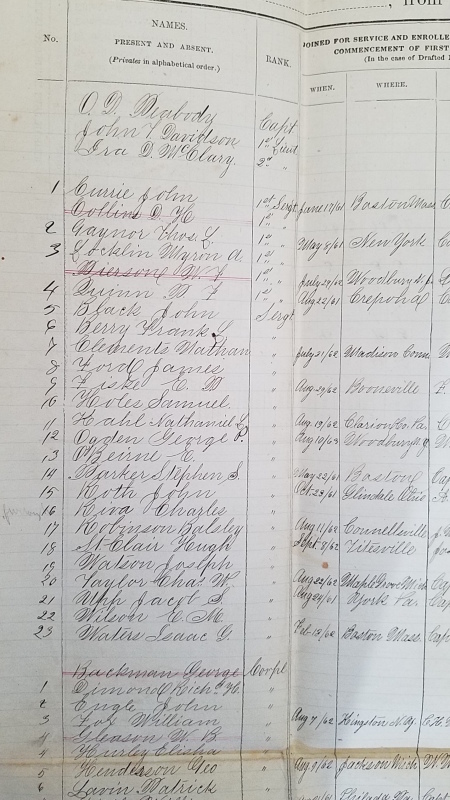 , from
NAMES.
No.
PRESENT AND ABSENT.
(Privates in alphabetical order.)
RANK.
JOINED FOR SERVICE AND ENROLLE
COMMENCEMENT OF FIRST
(In the case of Drafted
WHEN.
WHERE.
O. D. Peabody Capt
John T Davidson 1st Lieut
Ira D. McClary. 2d "
1 Currie John 1st Sergt June 17/61 Boston Mass
Collins D. H 1st "
2 Gaynor Thos. L. 1st " May 8/61 New York
3 Locklin Myron A. 1st "
Pierson W. F 1st " July 29/62 Woodbury N.J.
4 Quinn B F 1st " Aug 22/61
5 Black John Sergt
6 Berry Frank L "
7 Clements Nathan " July 21/62 Madison Conn
8 Ford James "
9 Fiske C. D " Aug 27/62 Booneville
10 Holes Samuel "
11 Kahl Nathaniel L " Aug 19/62 Clarion Co. Pa.
12 Ogden George P. " Aug 10/63 Woodbury N.J.
13 O'Beirne E. "
14 Parker Stephen S. " May 22/61 Boston Cap
15 Roth John " Oct. 23/61 Glendale
16 Riva Charles "
17 Robinson Balsley " Aug 11/62 Connellsville
18 St. Clair Hugh " Sept. 8/62 Titesville
19 Watson Joseph "
20 Taylor Chas. W. " Aug 22/62 Maple Grove Mich Cap
21 Upp Jacob S " Aug 29/61 York Pa. Cap
22 Wilson E. M. "
23 Waters Isaac G. " Feb 18/62 Boston Mass. Cap
Buckman George Corpl
1 Dimond Richd. H. "
2 Engle John "
3 Fox William " Aug 7/62 Kingston N.Y. C.H.
4 Gleason W. B "
4 Hersey Elisha "
5 Henderson Geo " Aug 9/62 Jackson Mich
6 Lavin Patrick "